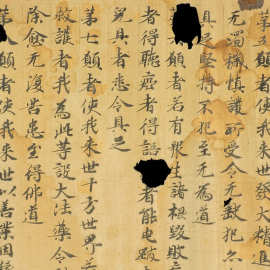 五願者使我來世發大精進
无濁穢慎護所受令无缺犯
具足堅持不犯至无為道
願者若有眾生諸根毀敗
者得聽瘂者得語 者能申跛
完具者悉令具足
第七願者使我來世十方世界
救護者我為此等設大法藥令
除愈无復苦患至得佛道
第八願者使我來世以善業因